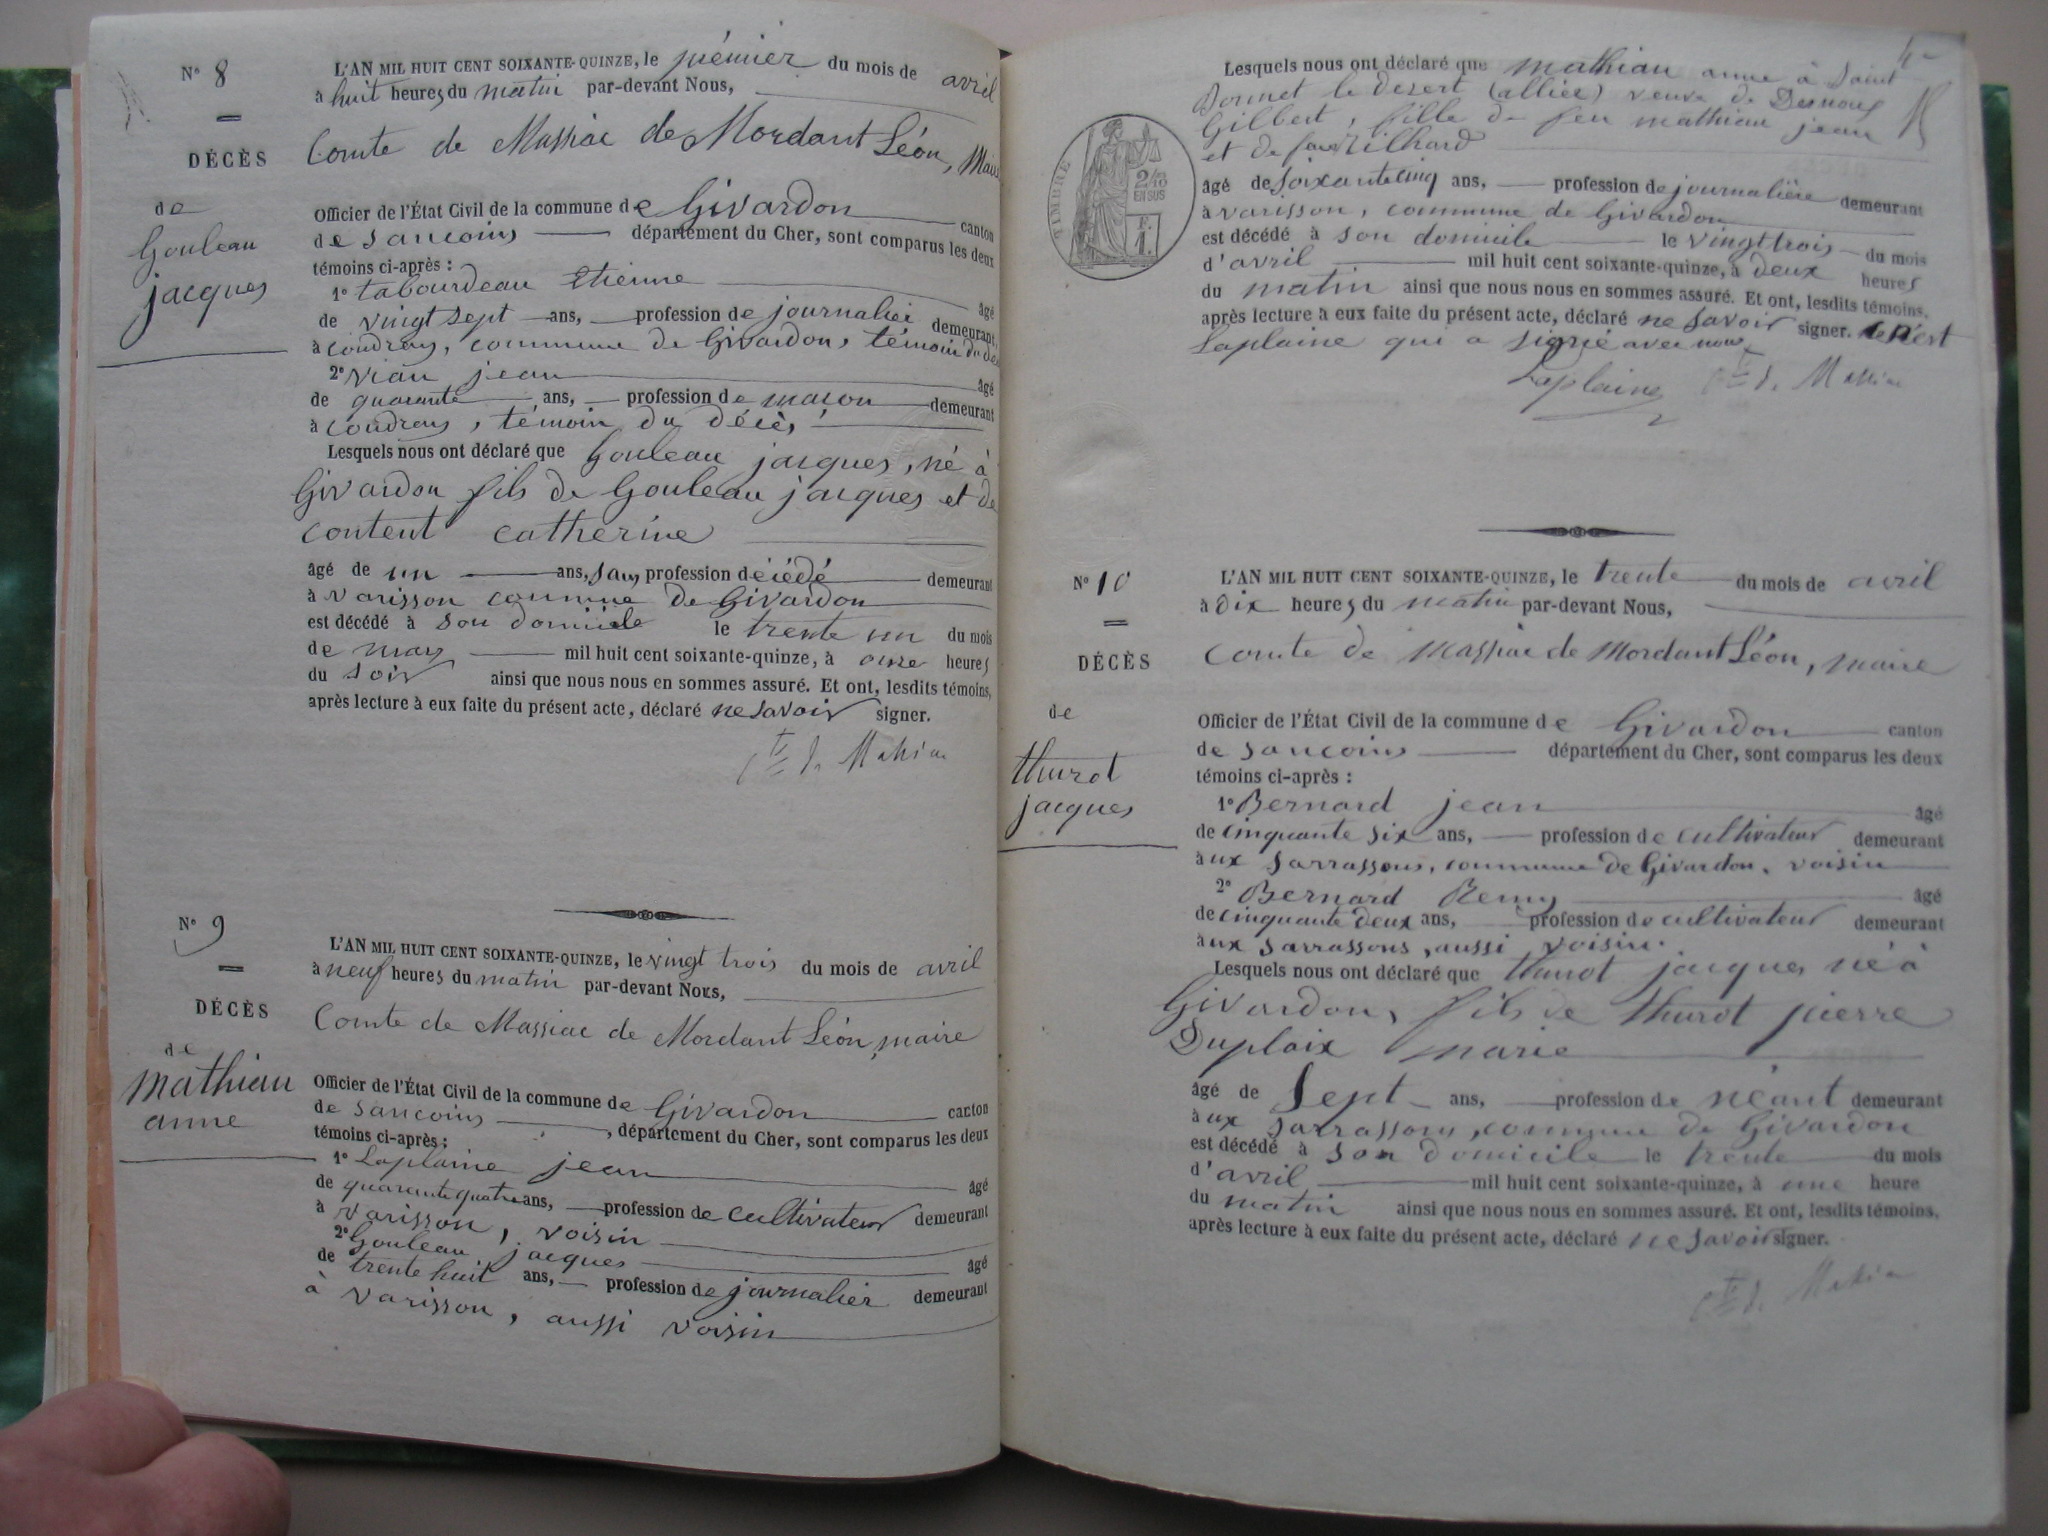 N° 8
DÉCÈS
de
Gouleau
jacques
L'AN MIL HUIT CENT SOIXANTE-QUINZE, le prémier du mois de avril
à huit heures du matin par-devant Nous,
Comte de Massiac de Mordant Léon, Maire
Officier de l'État Civil de la commune de Givardon canton
de Sancoins département du Cher, sont comparus les deux
témoins ci-après :
1° tabourdeau etienne âgé
de vingt sept ans, profession de journalier demeurant
à coudray, commune de Givardon, témoin du
2° vian jean âgé
de quarante ans, profession de maçon demeurant
à coudray, témoin du décès
Lesquels nous ont déclaré que Gouleau jacques, né à
Givardon fils de Gouleau jacques et de
content catherine
âgé de un ans, sans profession décédé demeurant
à varisson commune de Givardon
est décédé à son domicile le trente un du mois
de mars mil huit cent soixante-quinze, à onze heures
du soir ainsi que nous nous en sommes assuré. Et ont, lesdits témoins,
après lecture à eux faite du présent acte, déclaré ne savoir signer.
Cte de Massiac
N° 9
DÉCÈS
de
mathiau
anne
L'AN MIL HUIT CENT SOIXANTE-QUINZE, le vingt trois du mois de avril
à neuf heures du matin par-devant Nous,
Comte de Massiac de Mordant Léon, maire
Officier de l'État Civil de la commune de Givardon canton
de Sancoins, département du Cher, sont comparus les deux
témoins ci-après :
1° Laplaine jean âgé
de quarante quatre ans, profession de cultivateur demeurant
à varisson, voisin
2° Gouleau jacques âgé
de trente huit ans, profession de journalier demeurant
à varisson, aussi voisin
4
TIMBRE
2/10
EN SUS
F.
1.
Lesquels nous ont déclaré que mathiau anne à Saint
Bonnet le desert (allier) veuve de Desnoux
Gilbert, fille de feu mathiau jean
et de Rilhard
âgé de soixante cinq ans, profession de journalière demeurant
à varisson, commune de Givardon
est décédé à son domicile le vingt trois du mois
d'avril mil huit cent soixante-quinze, à deux heures
du matin ainsi que nous nous en sommes assuré. Et ont, lesdits témoins,
après lecture à eux faite du présent acte, déclaré ne savoir signer. ce n'est
Laplaine qui a signé avec nous
Laplaine Cte de Massiac
N° 10
DÉCÈS
de
thurot
jacques
L'AN MIL HUIT CENT SOIXANTE-QUINZE, le trente du mois de avril
à dix heures du matin par-devant Nous,
Comte de Massiac de Mordant Léon, maire
Officier de l'État Civil de la commune de Givardon canton
de Sancoins département du Cher, sont comparus les deux
témoins ci-après :
1° Bernard jean âgé
de cinquante six ans, profession de cultivateur demeurant
à ux sarrassons, commune de Givardon, voisin
2° Bernard Remy âgé
de cinquante deux ans, profession de cultivateur demeurant
à ux sarrassons, aussi voisin.
Lesquels nous ont déclaré que thurot jacques né à
Givardon, fils de thurot pierre
Duplaix marie
âgé de Sept ans, profession de néant demeurant
à ux sarrassons, commune de Givardon
est décédé à son domicile le trente du mois
d'avril mil huit cent soixante-quinze, à une heure
du matin ainsi que nous nous en sommes assuré. Et ont, lesdits témoins,
après lecture à eux faite du présent acte, déclaré ne savoir signer.
Cte de Massiac